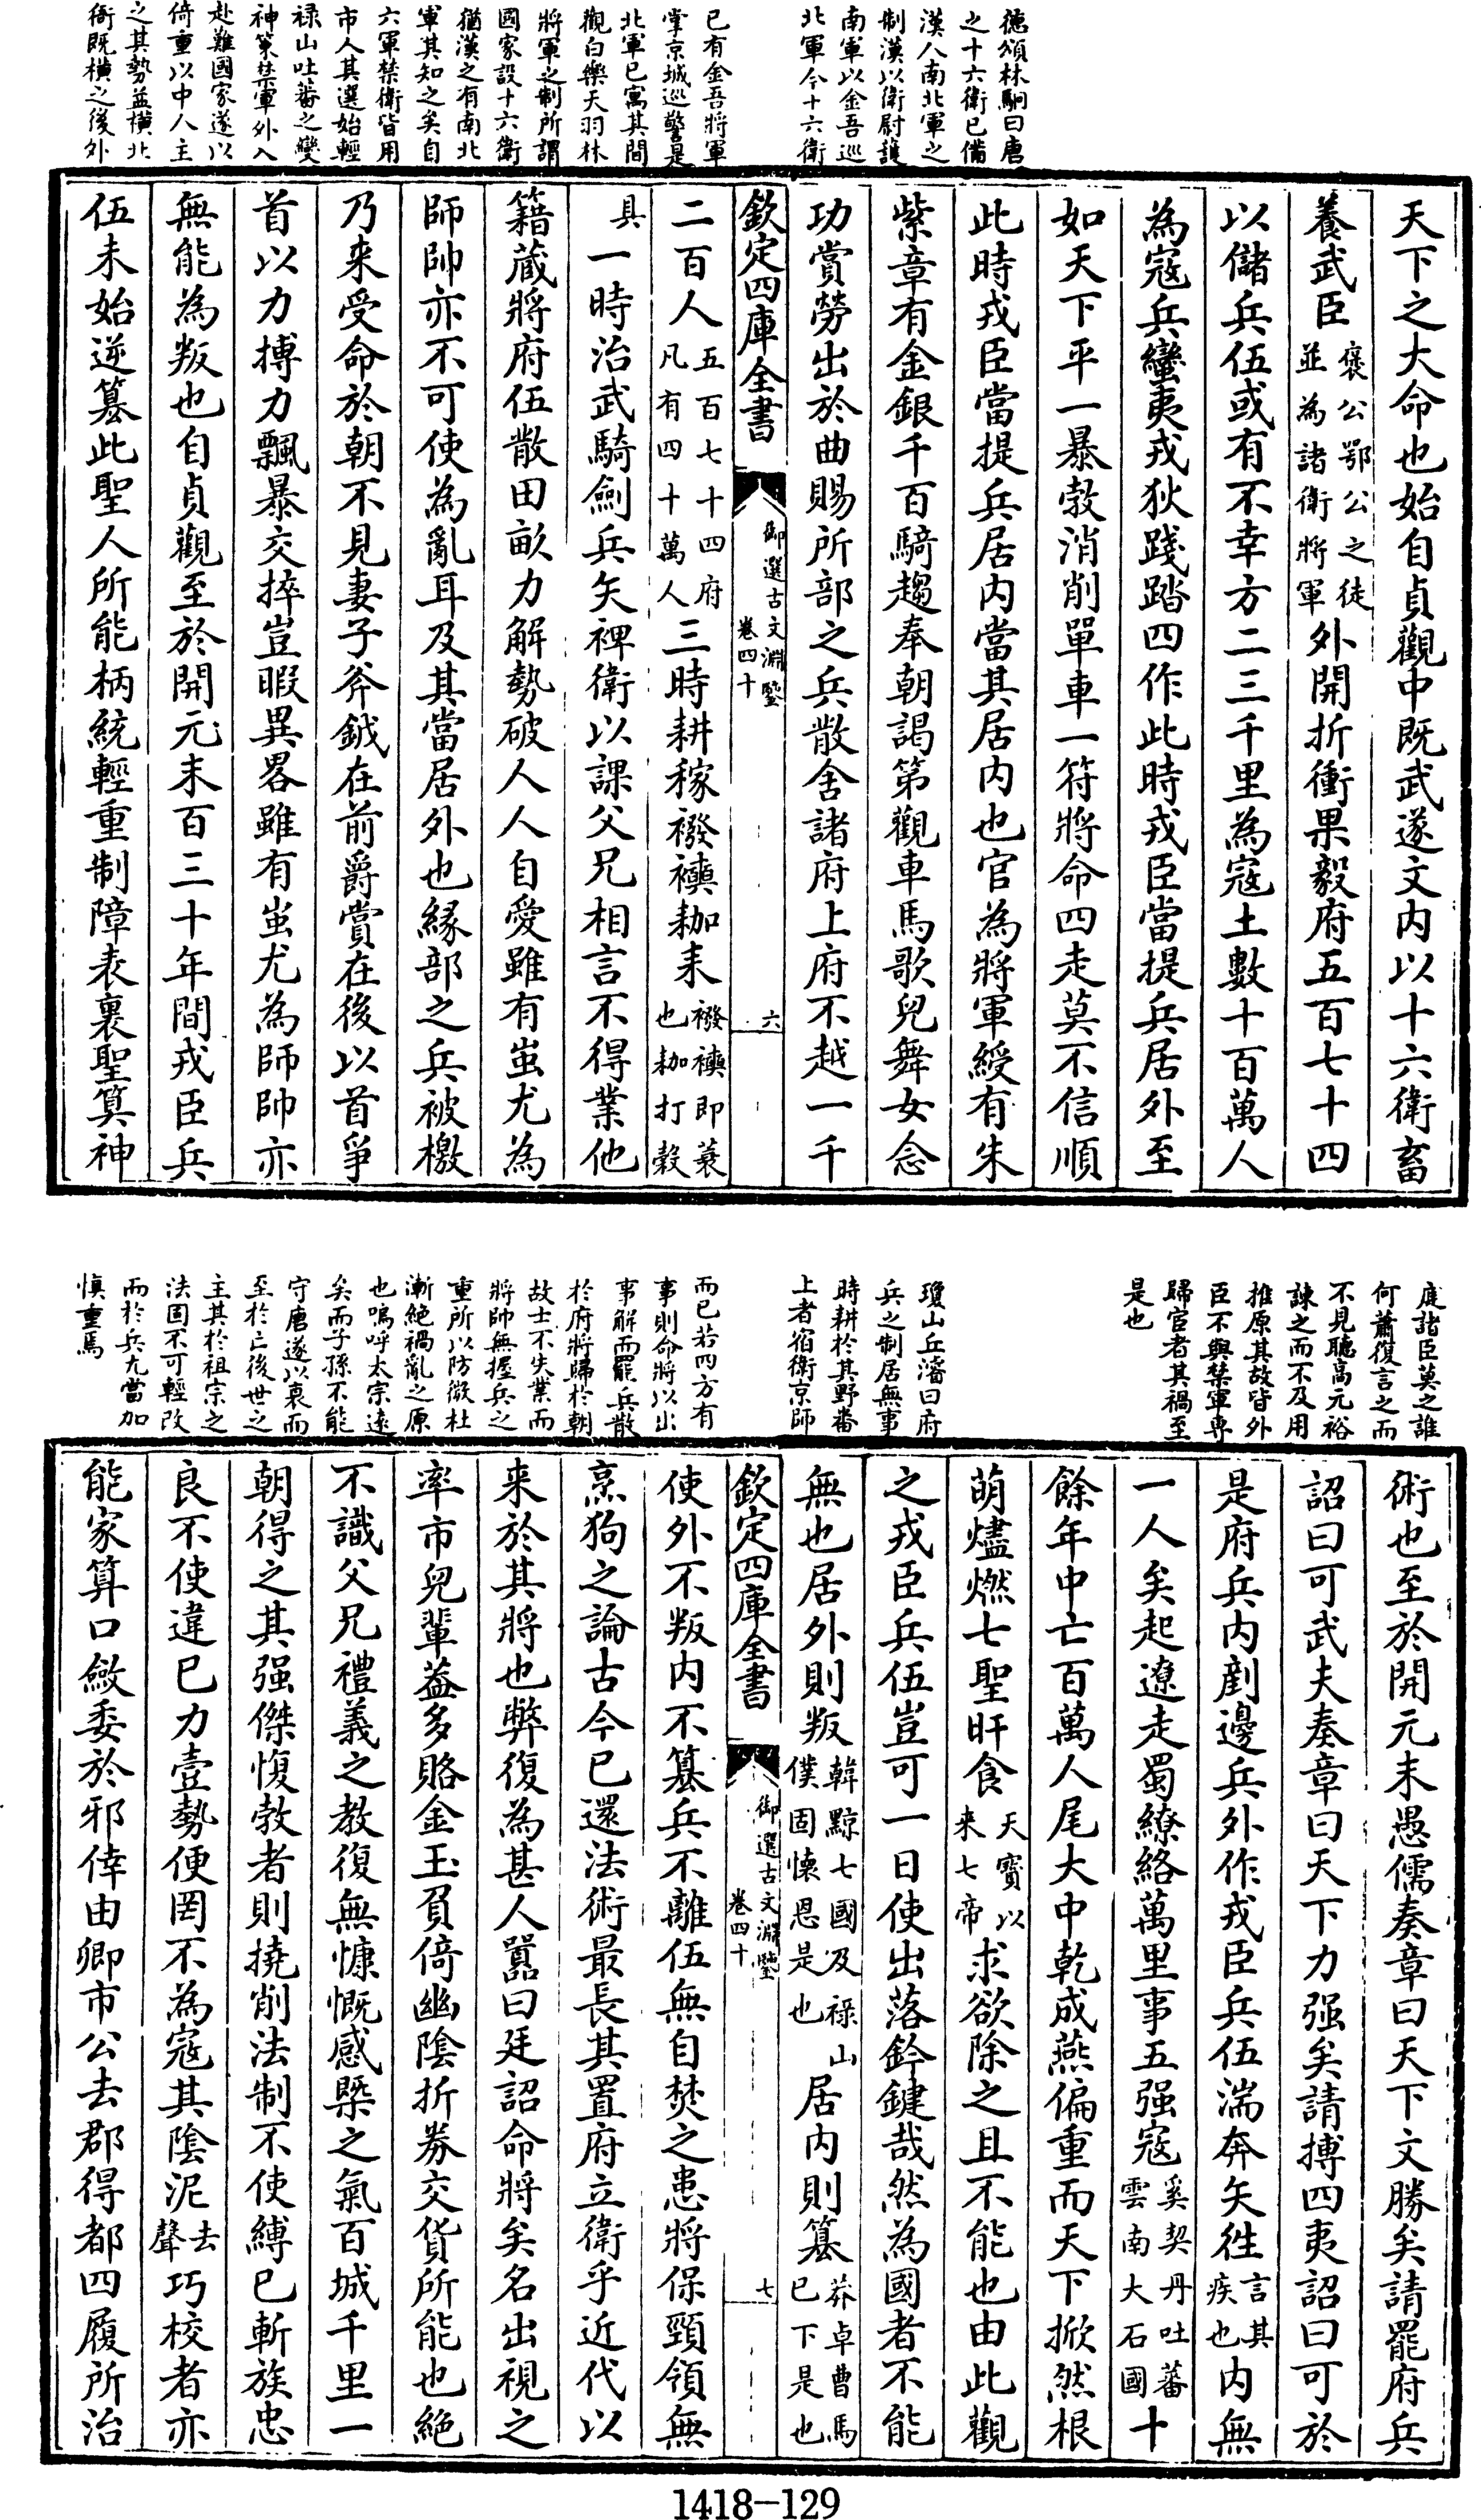 德頌林駉曰唐
之十六衛已備
漢人南北軍之
制漢以衛尉護
南軍以金吾巡
北軍今十六衛
已有金吾將軍
掌京城巡警是
北軍已寓其間
觀白樂天羽林
將軍之制所謂
國家設十六衛
猶漢之有南北
軍其知之矣自
六軍禁衛皆用
市人其選始輕
禄山吐蕃之變
神策禁軍外入
赴難國家遂以
倚重以中人主
之其勢益横北
衙既横之後外
天下之大命也始自貞觀中既武遂文内以十六衛畜
養武臣褒公鄂公之徒並為諸衛將軍外開折衝果毅府五百七十四
以儲兵伍或有不幸方二三千里為寇土數十百萬人
為寇兵蠻夷戎狄踐踏四作此時戎臣當提兵居外至
如天下平一暴勃消削單車一符將命四走莫不信順
此時戎臣當提兵居内當其居内也官為將軍綬有朱
紫章有金銀千百騎趨奉朝謁第觀車馬歌兒舞女念
功賞勞出於曲賜所部之兵散舍諸府上府不越一千
欽定四庫全書
御選古文淵鑒
卷四十
六
二百人五百七十四府凡有四十萬人三時耕稼襏襫耞耒襏襫即蓑也耞打穀
具一時治武騎劍兵矢裨衛以課父兄相言不得業他
籍蔵將府伍散田畝力解勢破人人自愛雖有蚩尤為
師帥亦不可使為亂耳及其當居外也縁部之兵被檄
乃来受命於朝不見妻子斧鉞在前爵賞在後以首爭
首以力搏力飄暴交捽豈暇異畧雖有蚩尤為師帥亦
無能為叛也自貞觀至於開元末百三十年間戎臣兵
伍未始逆篡此聖人所能柄統輕重制障表裏聖算神
庭諸臣莫之誰
何蕭復言之而
不見聽高元裕
諫之而不及用
推原其故皆外
臣不與禁軍専
歸宦者其禍至
是也
瓊山丘濬曰府
兵之制居無事
時耕於其野畨
上者宿衛京師
而已若四方有
事則命將以出
事解而罷兵散
於府將歸於朝
故士不失業而
將帥無握兵之
重所以防微杜
漸絶禍亂之原
也嗚呼太宗逺
矣而子孫不能
守唐遂以衰而
至於亡後世之
主其於祖宗之
法固不可輕改
而於兵尤當加
慎重焉
術也至於開元末愚儒奏章曰天下文勝矣請罷府兵
詔曰可武夫奏章曰天下力强矣請搏四夷詔曰可於
是府兵内剷邊兵外作戎臣兵伍湍奔矢徃言其疾也内無
一人矣起遼走蜀繚絡萬里事五强寇奚契丹吐蕃雲南大石國十
餘年中亡百萬人尾大中乾成燕偏重而天下掀然根
萌燼燃七聖旰食天寳以来七帝求欲除之且不能也由此觀
之戎臣兵伍豈可一日使出落鈐鍵哉然為國者不能
無也居外則叛韓黥七國及禄山僕固懷恩是也居内則篡莽卓曹馬已下是也
欽定四庫全書
御選古文淵鑒
卷四十
七
使外不叛内不篡兵不離伍無自焚之患將保頸領無
烹狗之論古今已還法術最長其置府立衛乎近代以
来於其將也弊復為甚人嚚曰廷詔命將矣名出視之
率市兒輩葢多賂金玉負倚幽陰折券交貨所能也絶
不識父兄禮義之教復無慷慨感槩之氣百城千里一
朝得之其强傑愎勃者則撓削法制不使縛已斬族忠
良不使違已力壹勢便罔不為寇其陰泥去聲巧校者亦
能家算口斂委於邪倖由卿市公去郡得都四履所治
1418-129